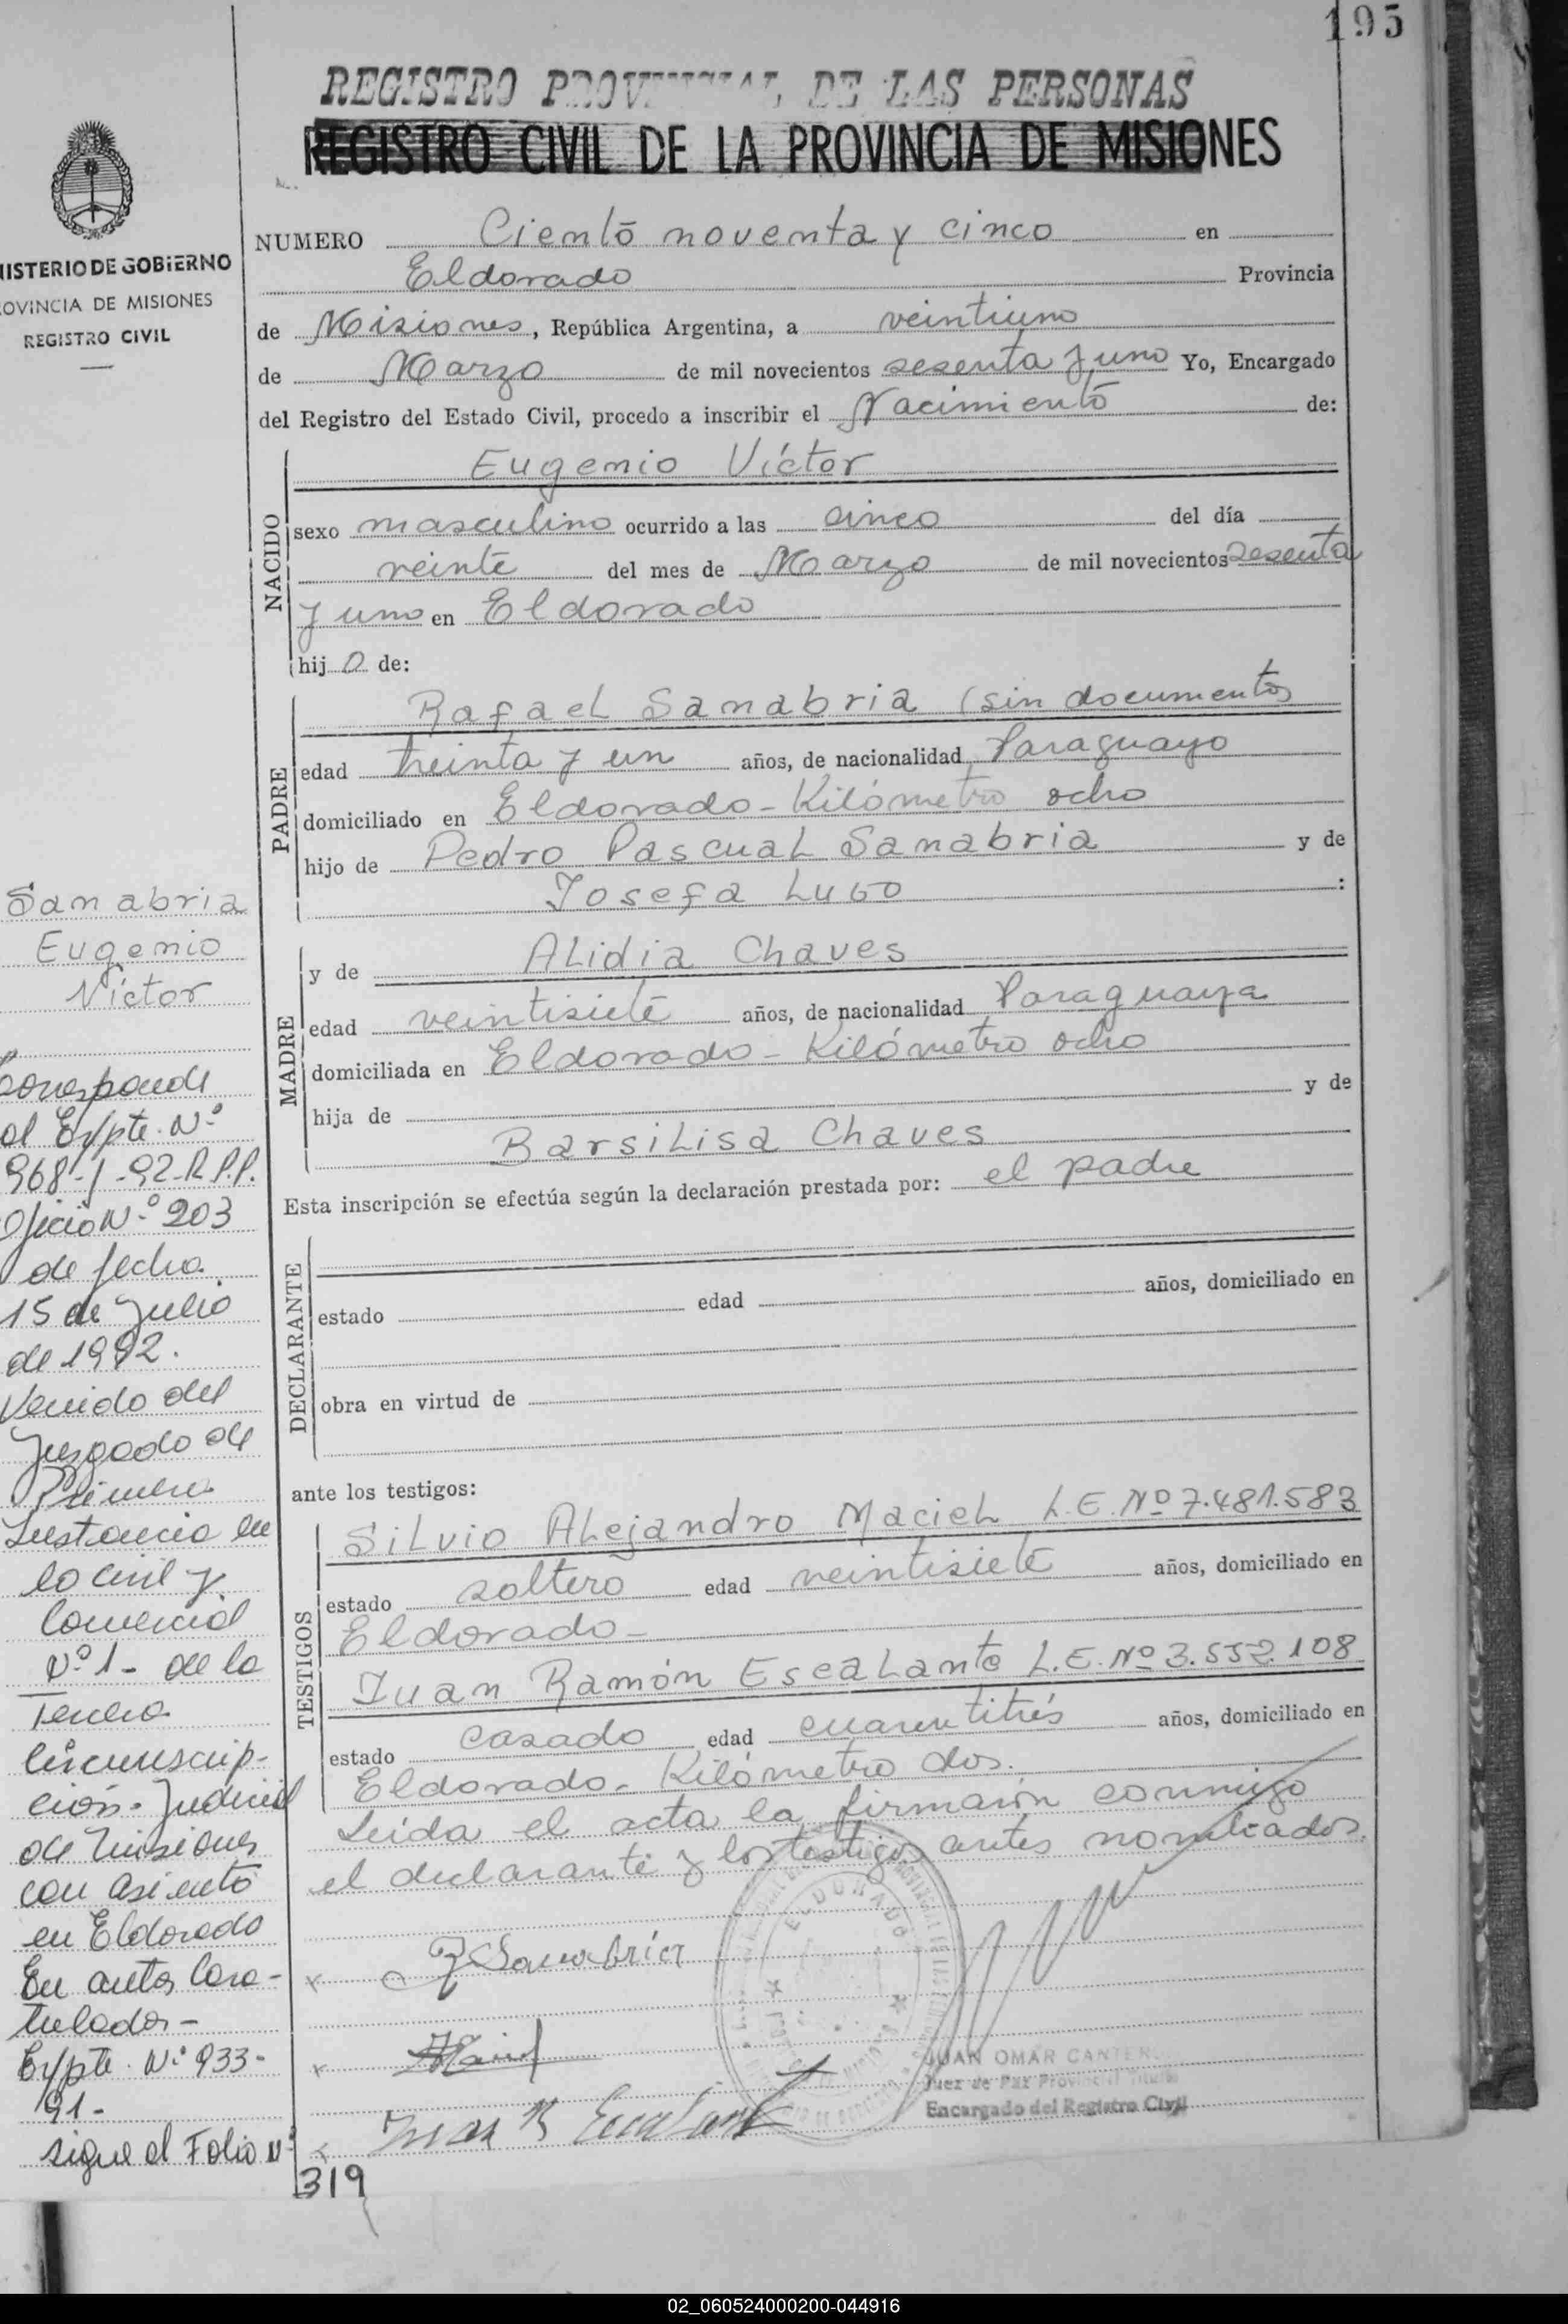 195
REGISTRO PROVINCIAL DE LAS PERSONAS
REGISTRO CIVIL DE LA PROVINCIA DE MISIONES
NISTERIO DE GOBIERNO
OVINCIA DE MISIONES
REGISTRO CIVIL
NUMERO Ciento noventa y cinco en
Eldorado Provincia
de Misiones, República Argentina, a veintiuno
de Marzo de mil novecientos sesenta y uno Yo, Encargado
del Registro del Estado Civil, procedo a inscribir el Nacimiento de:
NACIDO
Eugenio Víctor
sexo masculino ocurrido a las cinco del día
veinte del mes de Marzo de mil novecientos sesenta
y uno en Eldorado
hijo de:
PADRE
Rafael Sanabria (sin documentos
edad treinta y un años, de nacionalidad Paraguayo
domiciliado en Eldorado - Kilómetro ocho
hijo de Pedro Pascual Sanabria y de
Josefa Lugo :
MADRE
y de Alidia Chaves
edad veintisiete años, de nacionalidad Paraguaya
domiciliada en Eldorado - Kilómetro ocho
hija de y de
Barsilisa Chaves
Esta inscripción se efectúa según la declaración prestada por: el padre
DECLARANTE
estado edad años, domiciliado en
obra en virtud de
ante los testigos:
TESTIGOS
Silvio Alejandro Maciel L.E. Nº 7.481.583
estado soltero edad veintisiete años, domiciliado en
Eldorado -
Juan Ramón Escalante L.E. Nº 3.552.108
estado casado edad cuarentitrés años, domiciliado en
Eldorado - Kilómetro dos.
Leída el acta la firmarón conmigo
el declarante y los testigos antes nombrados.
R Sanabria
Juan R Escalante
ELDORADO
JUAN OMAR CANTER
Juez de Paz Provincial Titular
Encargado del Registro Civil
Sanabria
Eugenio
Víctor
Corresponde
al Expte. Nº
968-1-92-R.P.P.
Oficio Nº 203
de fecha
15 de Julio
de 1992.
Venido del
Juzgado de
Primera
Instancia en
lo Civil y
Comercial
Nº 1 - de la
Tercera
Circunscrip-
ción - Judicial
de Misiones
con asiento
en Eldorado
En autos Cara-
tulados -
Expte. Nº 933-
91-
sigue el Folio Nº
319
02_060524000200-044916